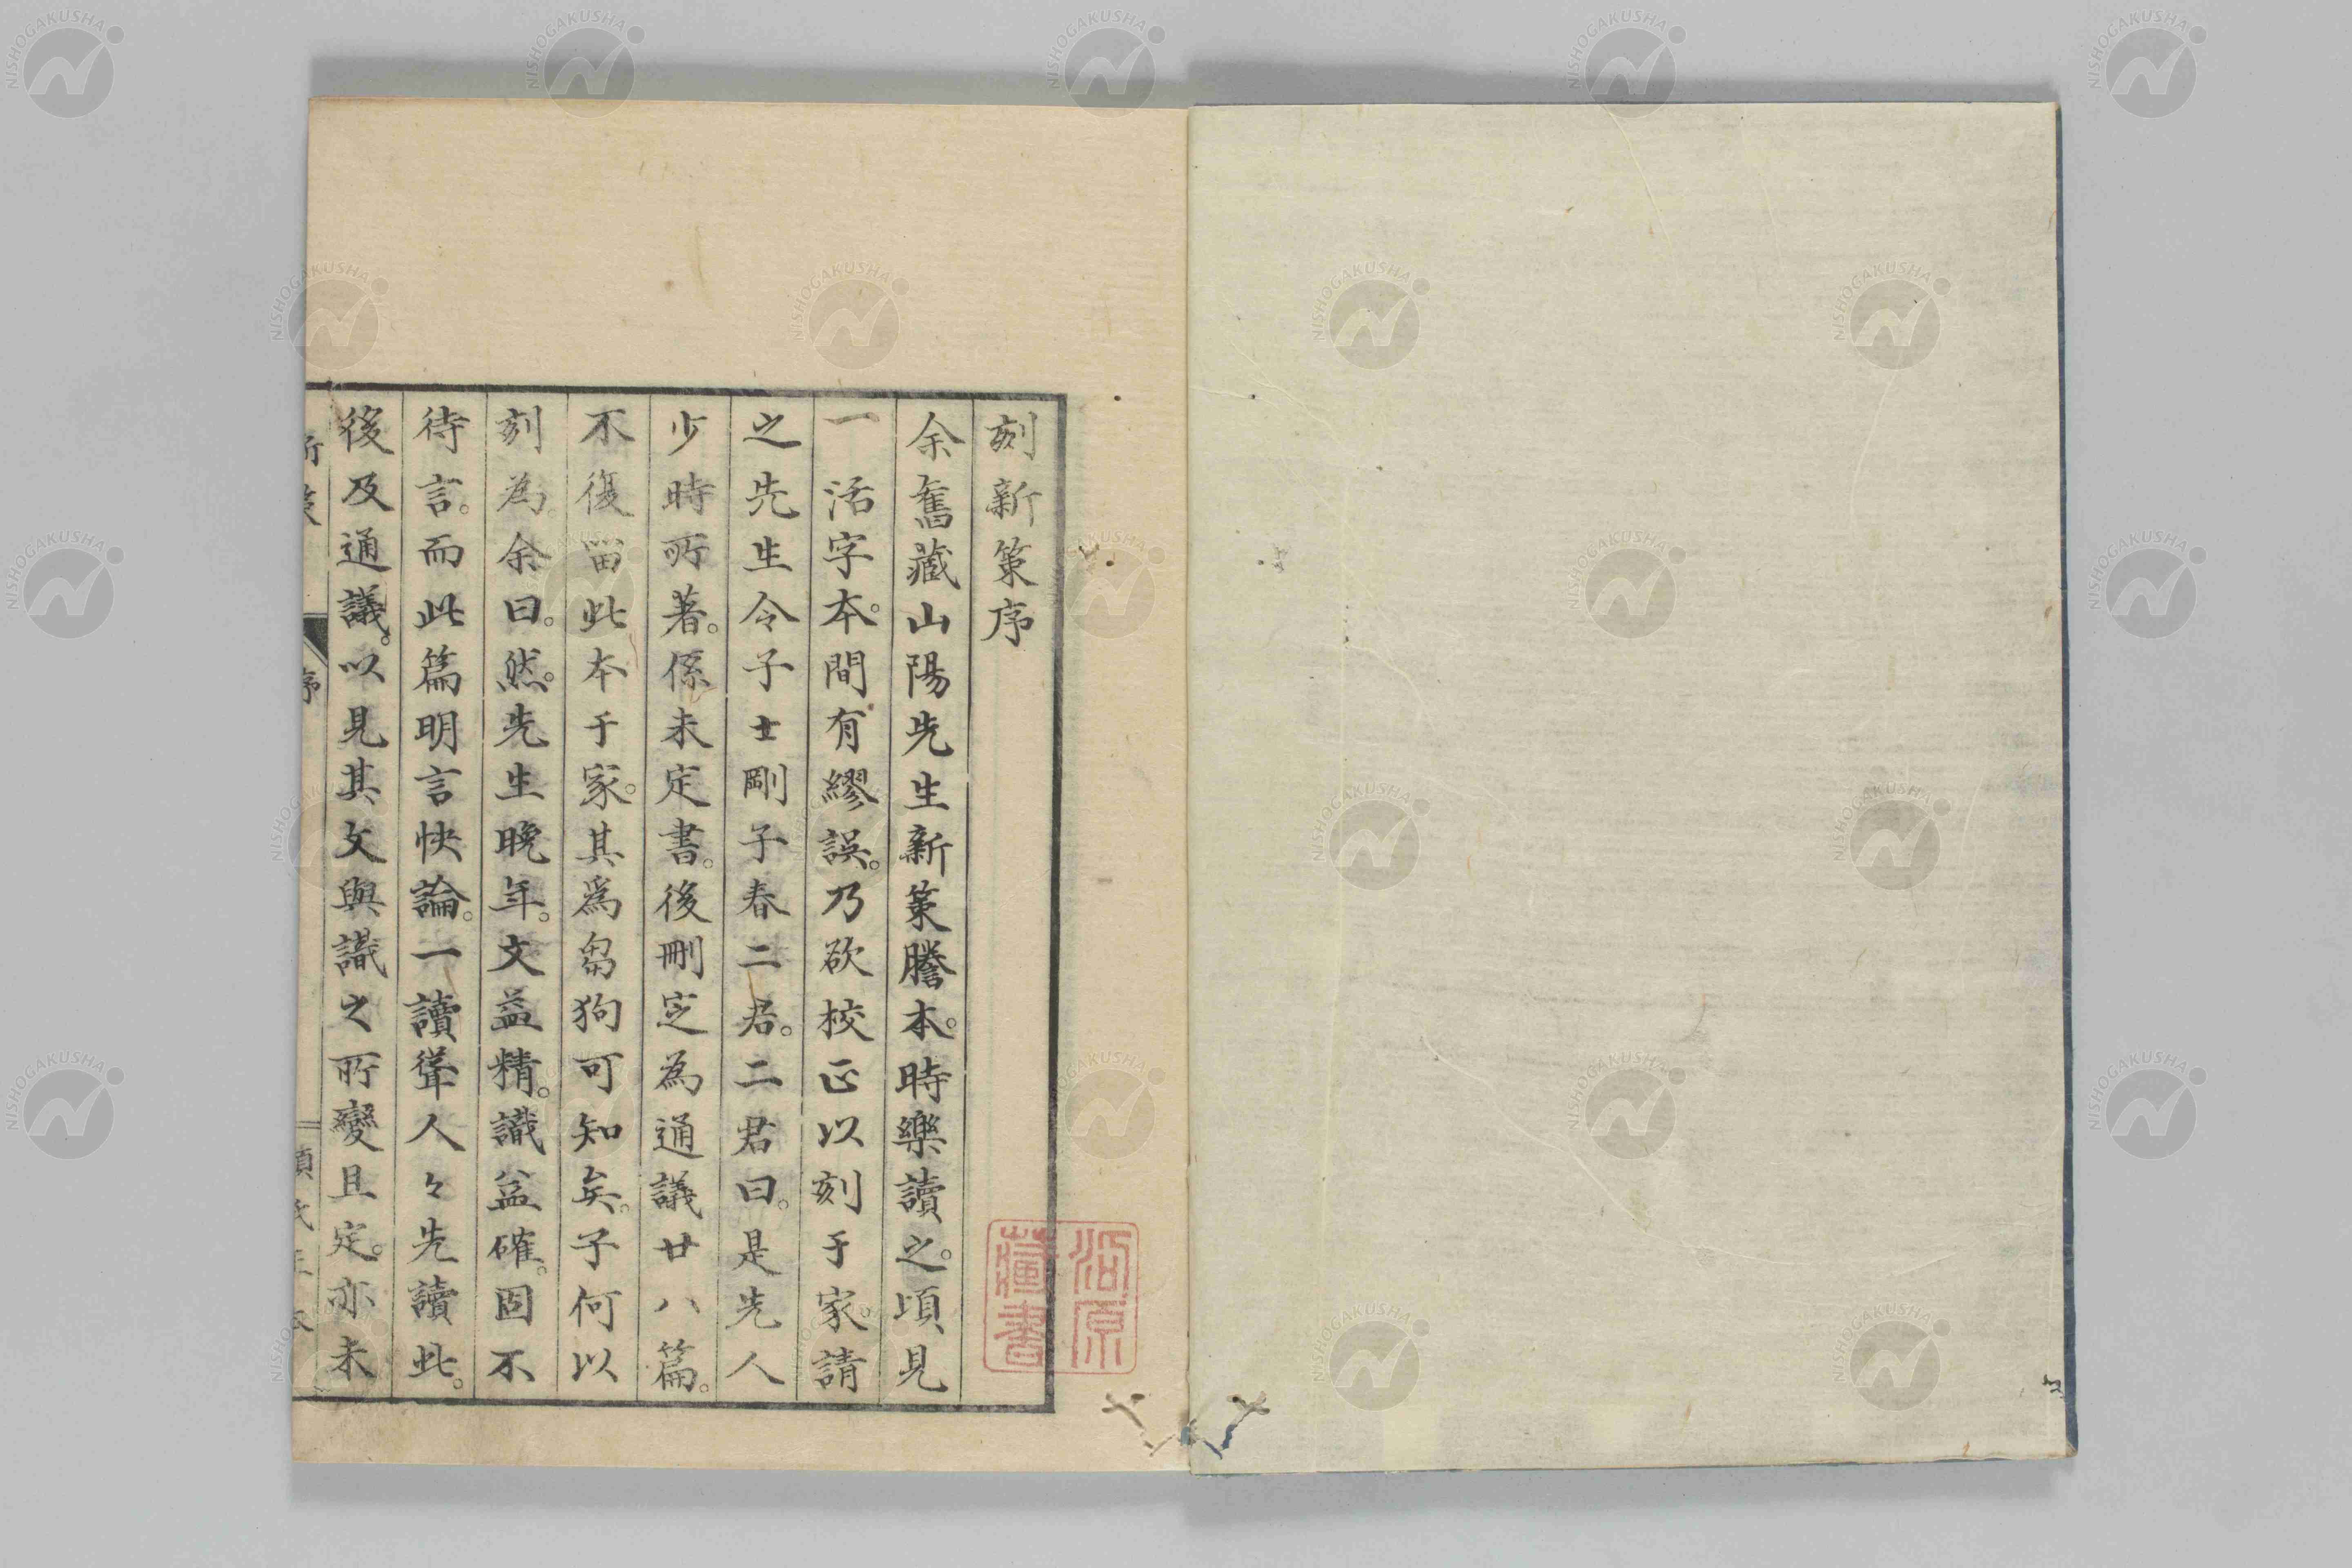 刻新策序
余舊藏山陽先生新策謄本。時樂讀之。頃見
一活字本。間有繆誤。乃欲校正以刻于家。請
之先生令子士剛子春二君。二君曰。是先人
少時所著。係未定書。後刪定為通議廿八篇。
不復留此本于家。其爲芻狗可知矣。子何以
刻為。余曰。然。先生晚年。文益精。識益確。固不
待言。而此篇明言快論。一讀聳人々先讀此。
後及通議。以見其文與識之所變且定。亦未
序
河原
蔵書
NISHOGAKUSHA